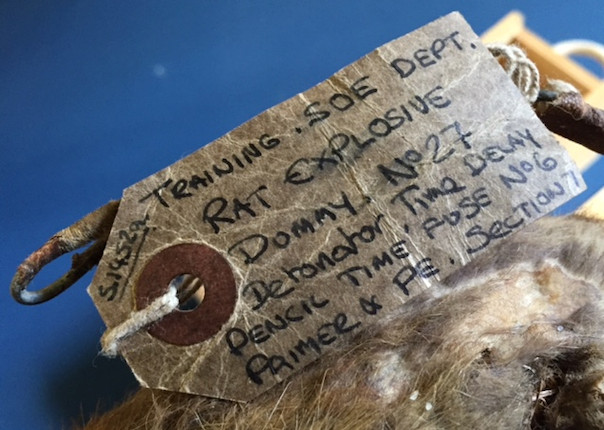 TRAINING. SOE DEPT.
RAT EXPLOSIVE
DUMMY. No27
Detonator, Time DELAY
PENCIL TIME, FUSE No6
PRIMER & PE. Section 7